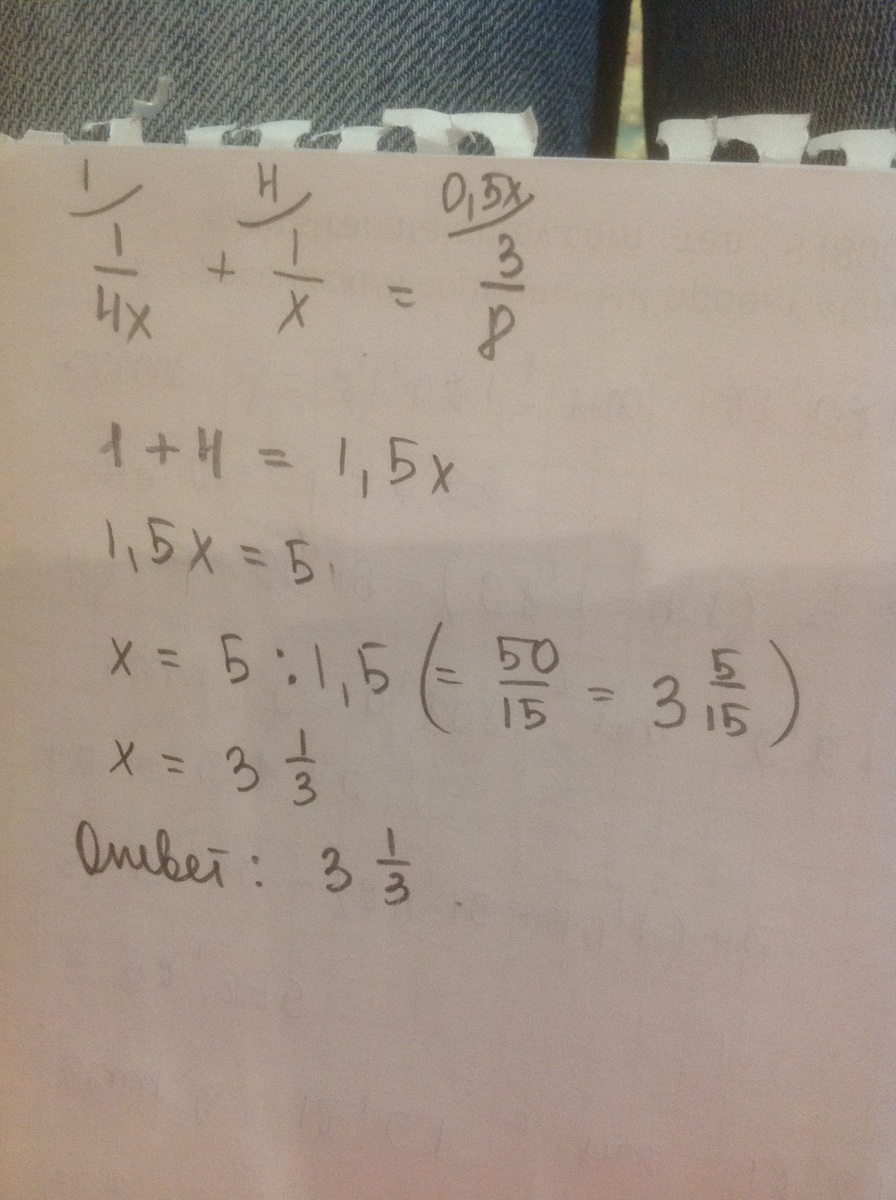 1/ 4/ 0,5x/
1/4x + 1/x = 3/8
1 + 4 = 1,5x
1,5x = 5
x = 5 : 1,5 (= 50/15 = 3 5/15)
x = 3 1/3
Ответ: 3 1/3